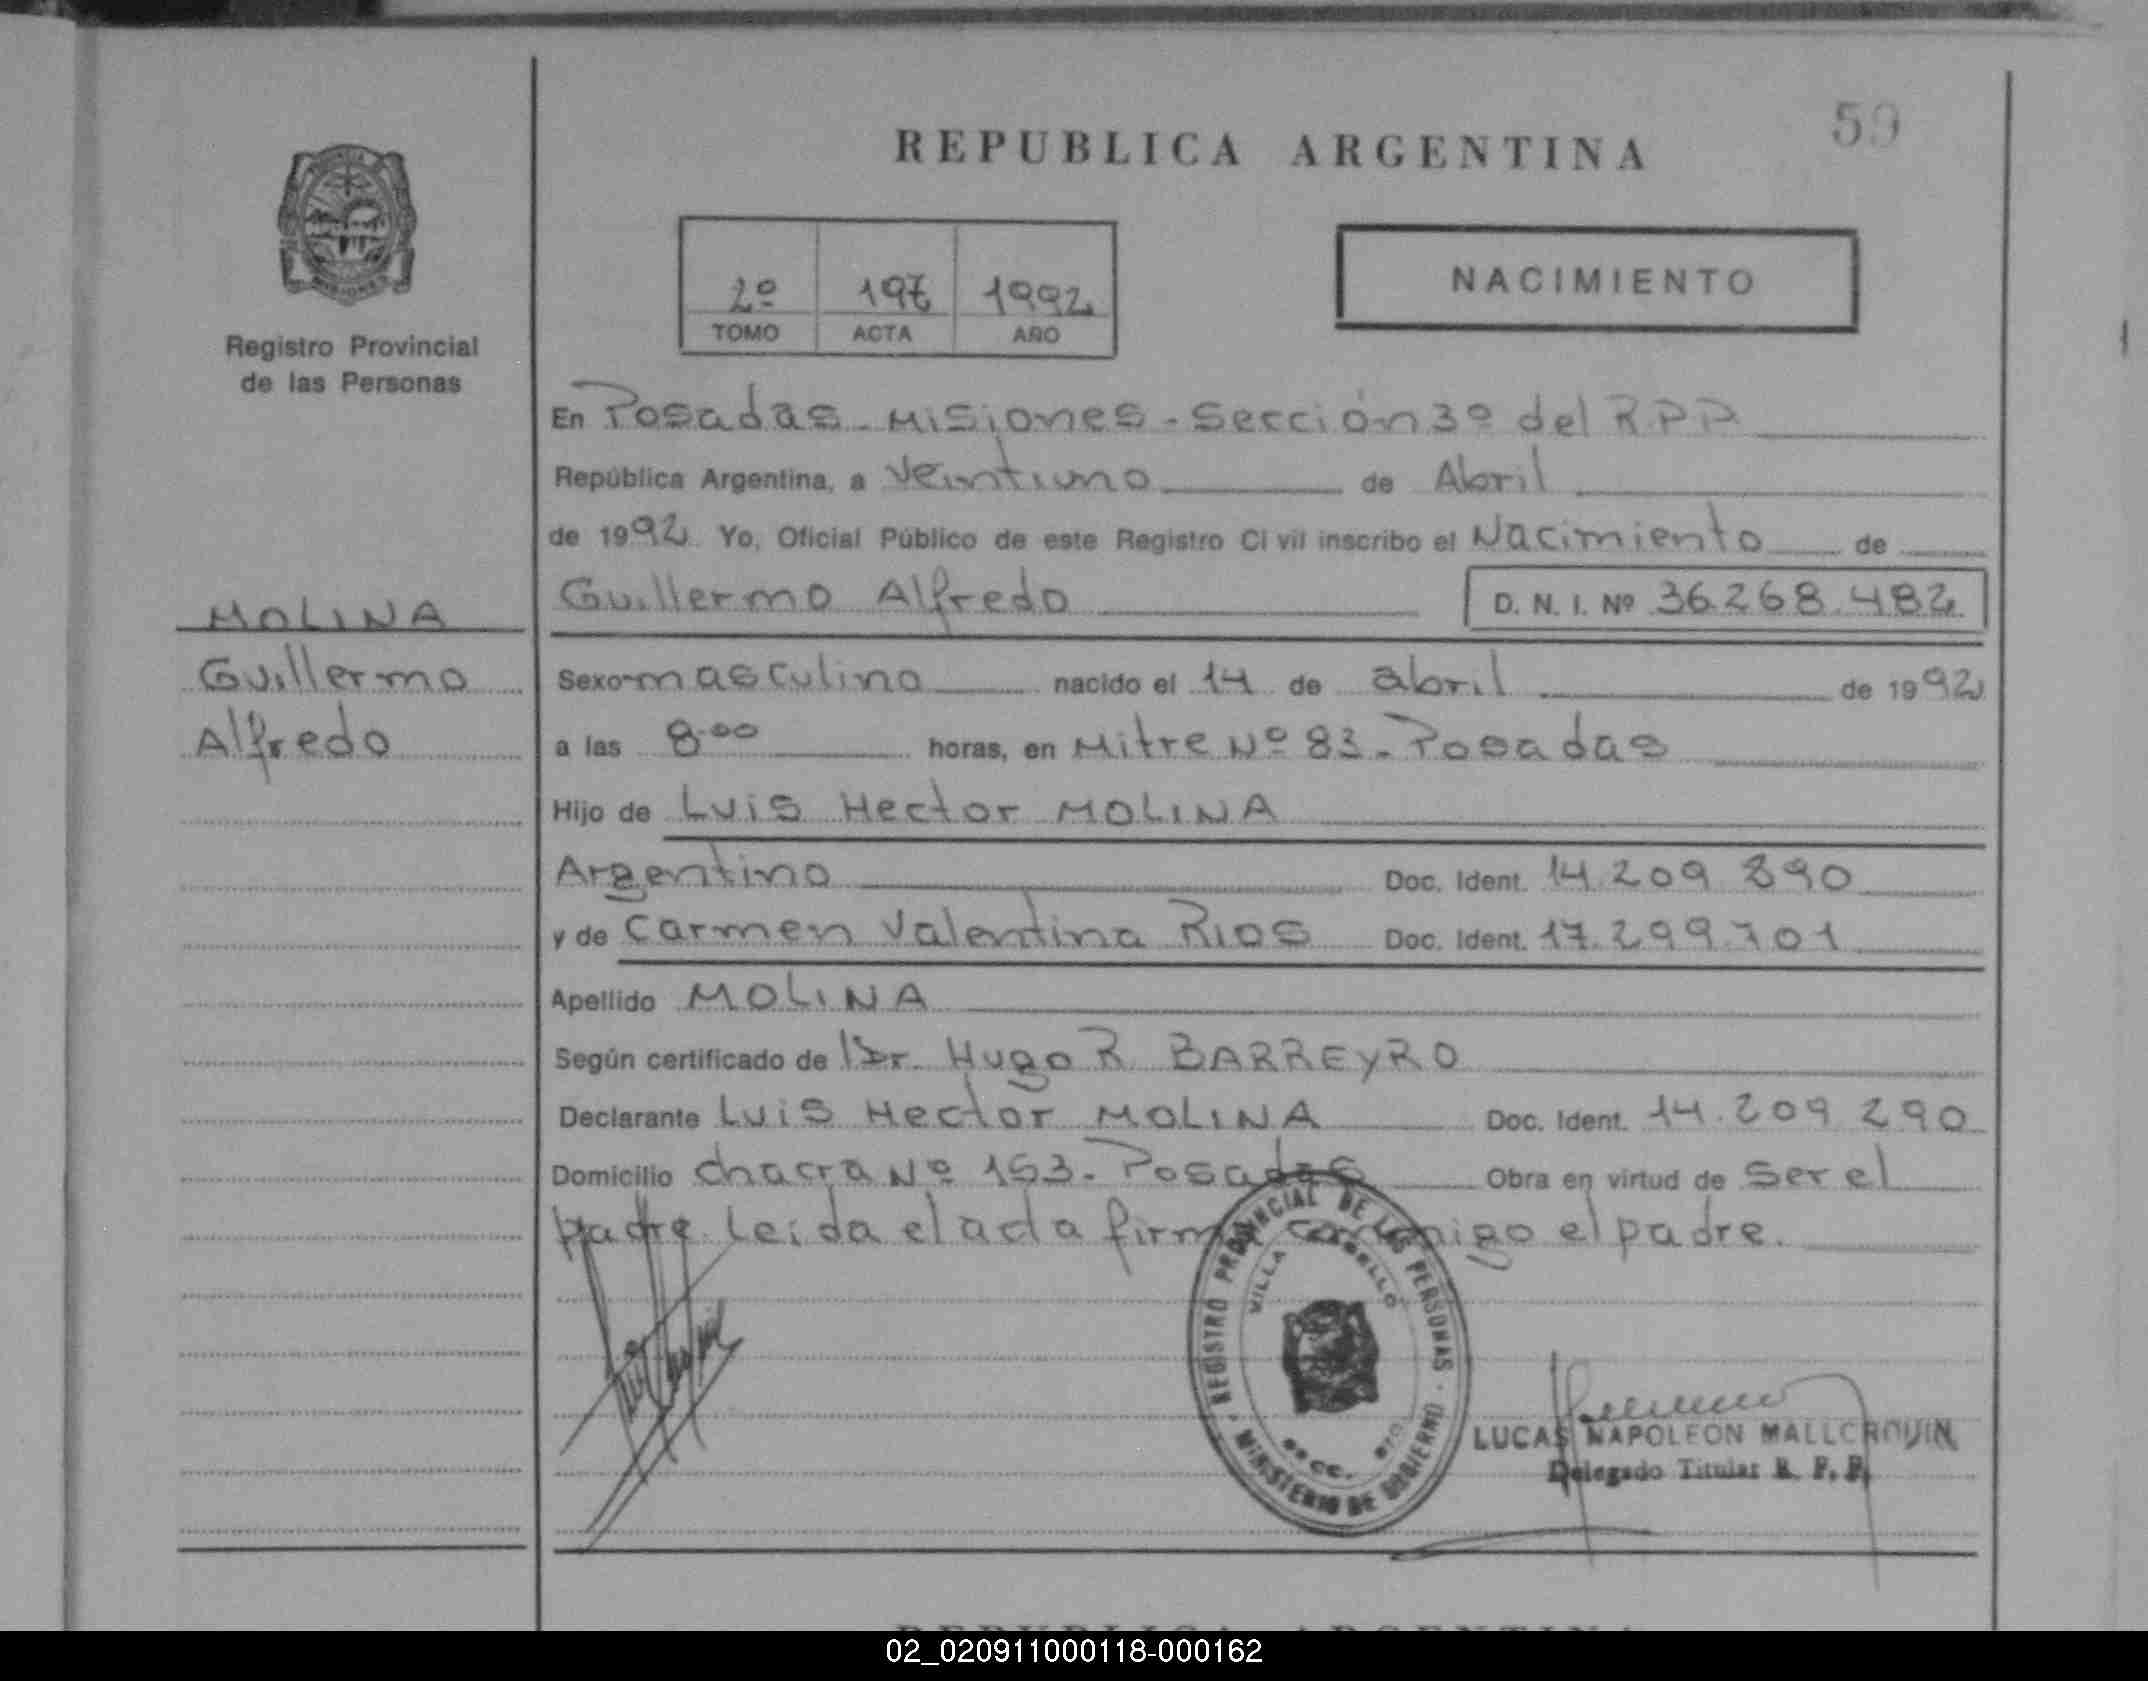 59
REPUBLICA ARGENTINA
2º 196 1992
TOMO ACTA AÑO
NACIMIENTO
Registro Provincial
de las Personas
En Posadas - Misiones - Sección 3º del R.P.P
República Argentina, a Veintiuno de Abril
de 1992 Yo, Oficial Público de este Registro Civil inscribo el Nacimiento de
Guillermo Alfredo D. N. I. Nº 36.268.482
MOLINA
Guillermo
Alfredo
Sexo masculino nacido el 14 de abril de 1992
a las 8.00 horas, en Mitre Nº 83 - Posadas
Hijo de Luis Hector MOLINA
Argentino Doc. Ident. 14.209 890
y de Carmen Valentina RIOS Doc. Ident. 17.299.701
Apellido MOLINA
Según certificado de Dr. Hugo R BARREYRO
Declarante Luis Hector MOLINA Doc. Ident. 14.209 290
Domicilio chacra Nº 153 - Posadas Obra en virtud de ser el
padre. Leida el acta firma conmigo el padre.
REGISTRO PROVINCIAL DE LAS PERSONAS
VILLA
SECC.
MINISTERIO DE GOBIERNO
LUCAS NAPOLEON
Delegado Titular R. P. P.
REPUBLICA ARGENTINA
02_020911000118-000162